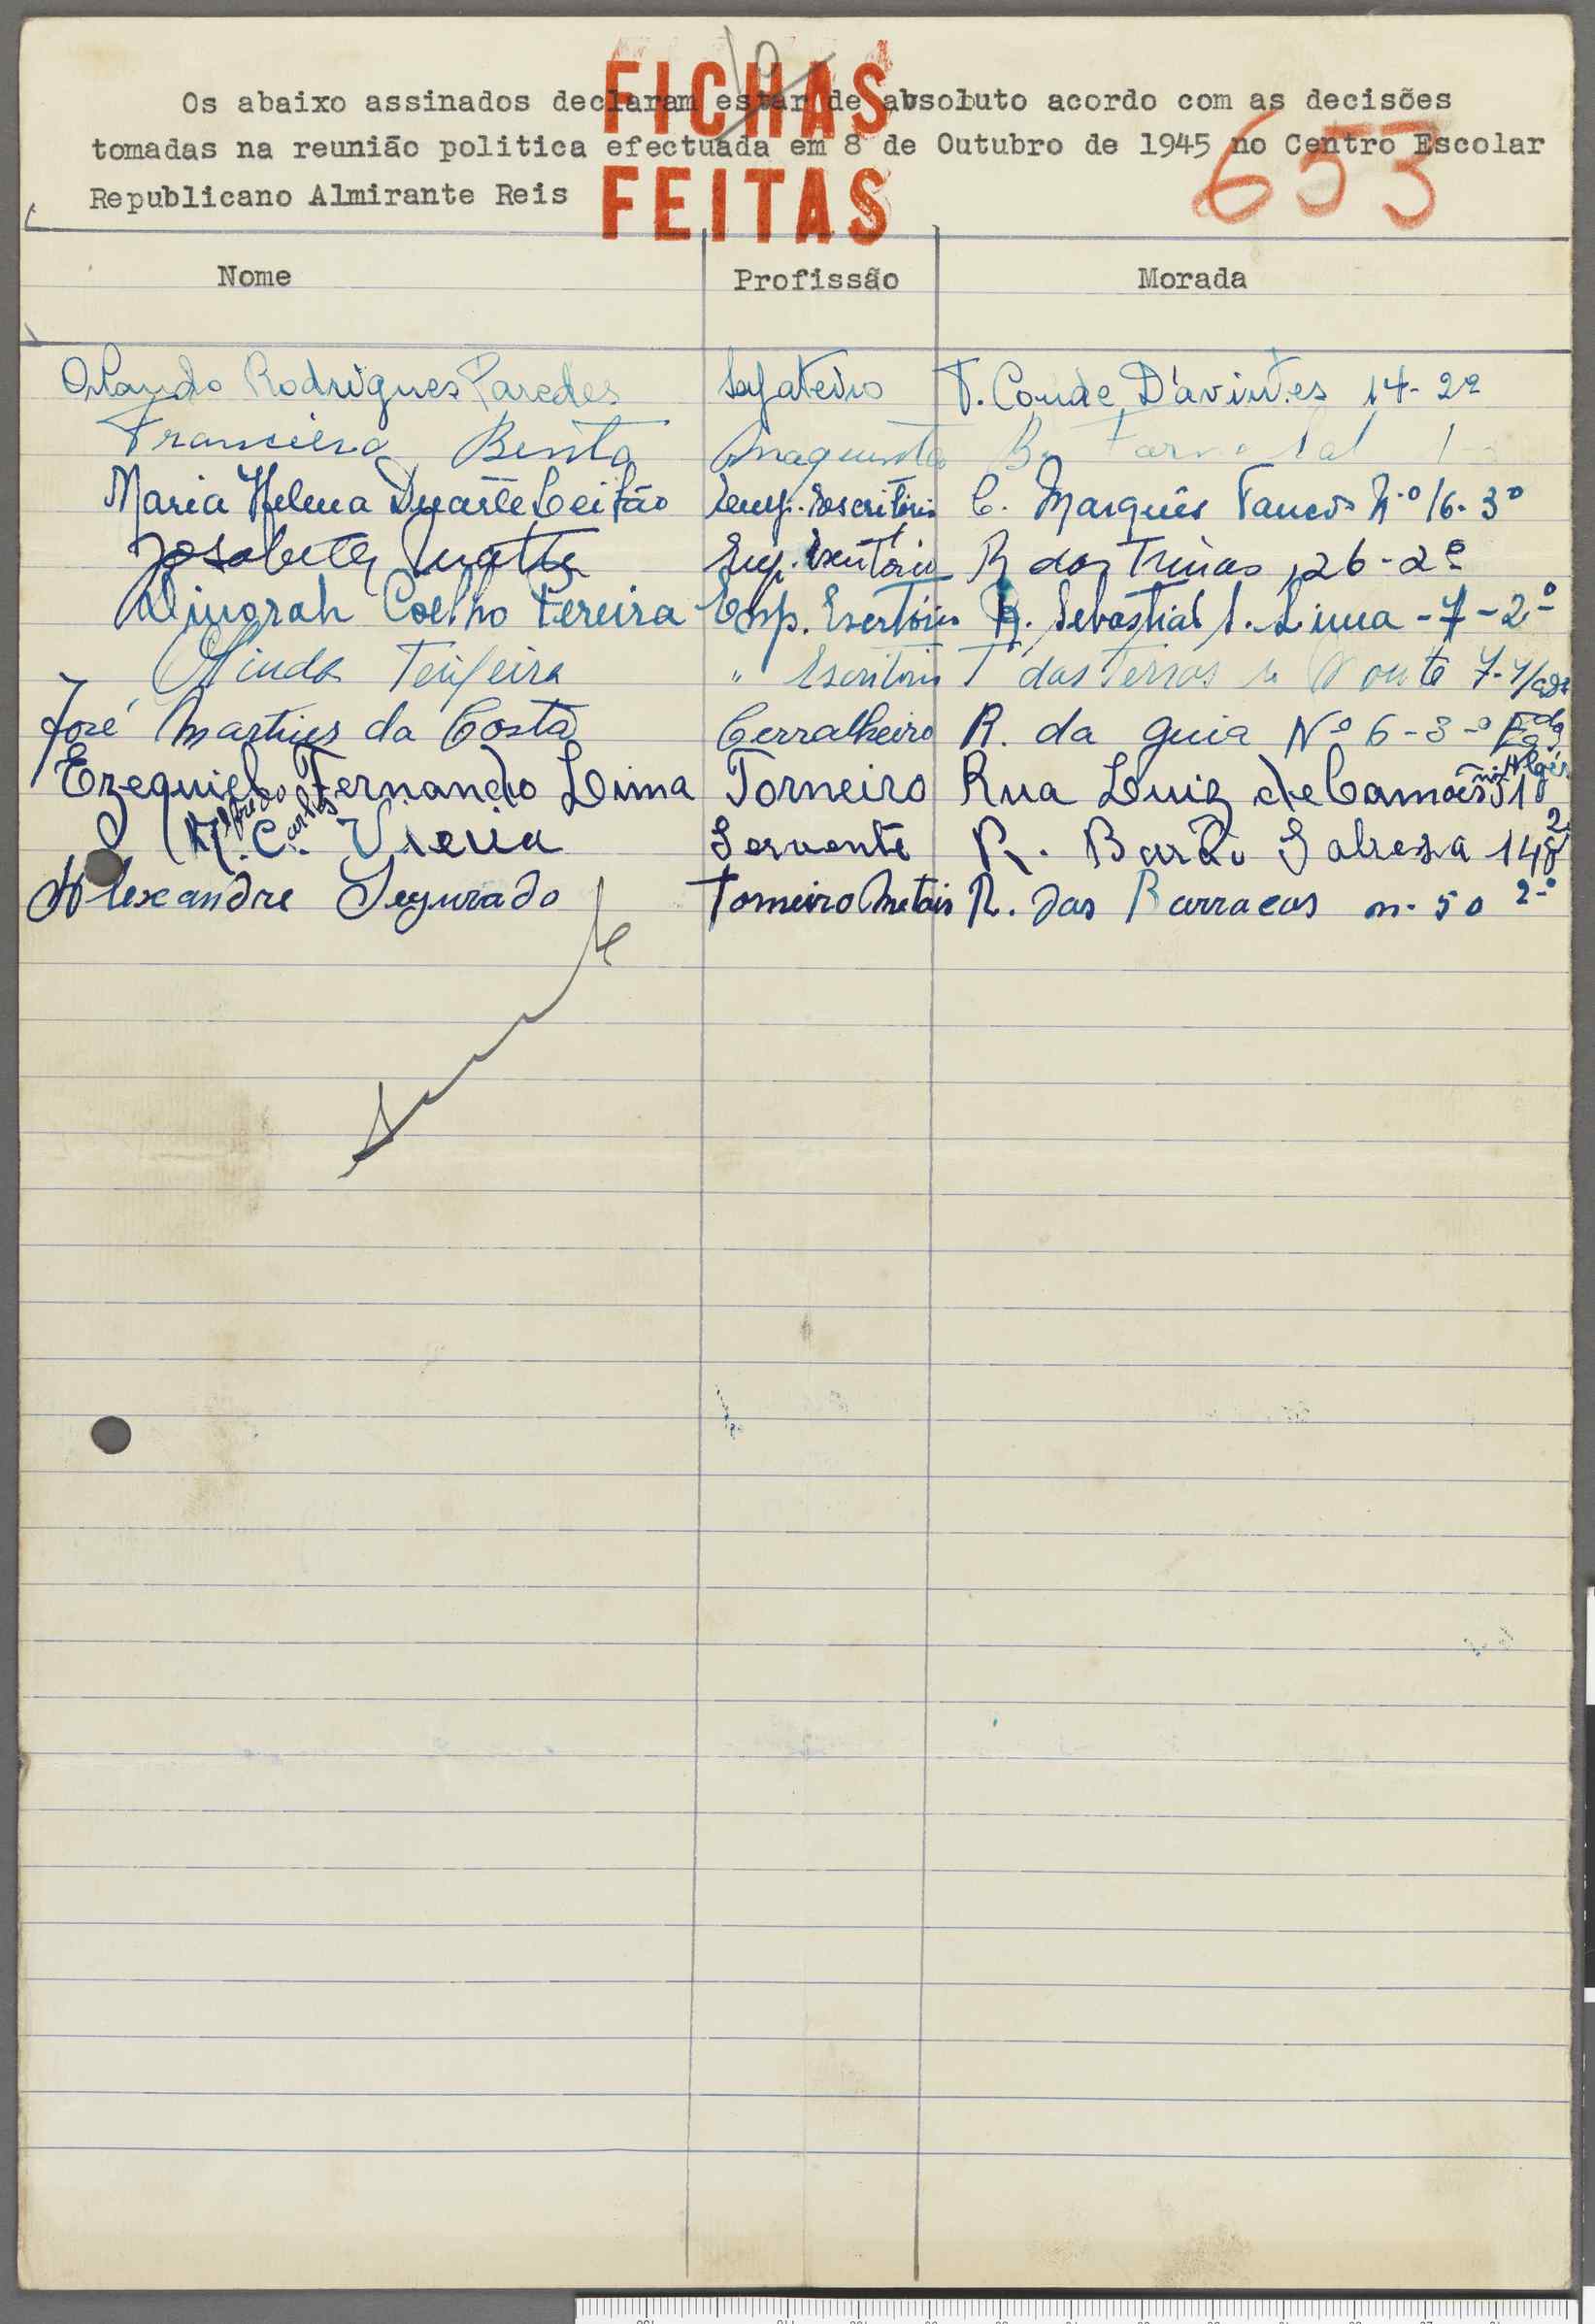 FICHAS
FEITAS
653
Os abaixo assinados declaram estar de absoluto acordo com as decisões
tomadas na reunião politica efectuada em 8 de Outubro de 1945 no Centro Escolar
Republicano Almirante Reis
Nome Profissão Morada
Orlando Rodrigues Paredes Sapateiro T. Conde D'avintes 14-2º
Bento
Maria Helena Duarte Leitão Emp. Escritório C. Marquês Tancos N.º 16-3º
Emp. Escritório R das Trinas, 26-2º
Dinorah Coelho Pereira Emp. Escritório R. Sebastião S. Lima-7-2º
Olinda Teixeira " Escritorio T das Terras do Monte 7-
José Martins da Costa Cerralheiro R. da Guia Nº 6-3-º
Ezequiel Fernando Lima Torneiro Rua Luiz de Camões 51 Algés
Alfredo Carlos Vieira Servente R. Barão Sabrosa 148 2
Alexandre Segurado Torneiro Metais R. das Barracas n. 50 2-º